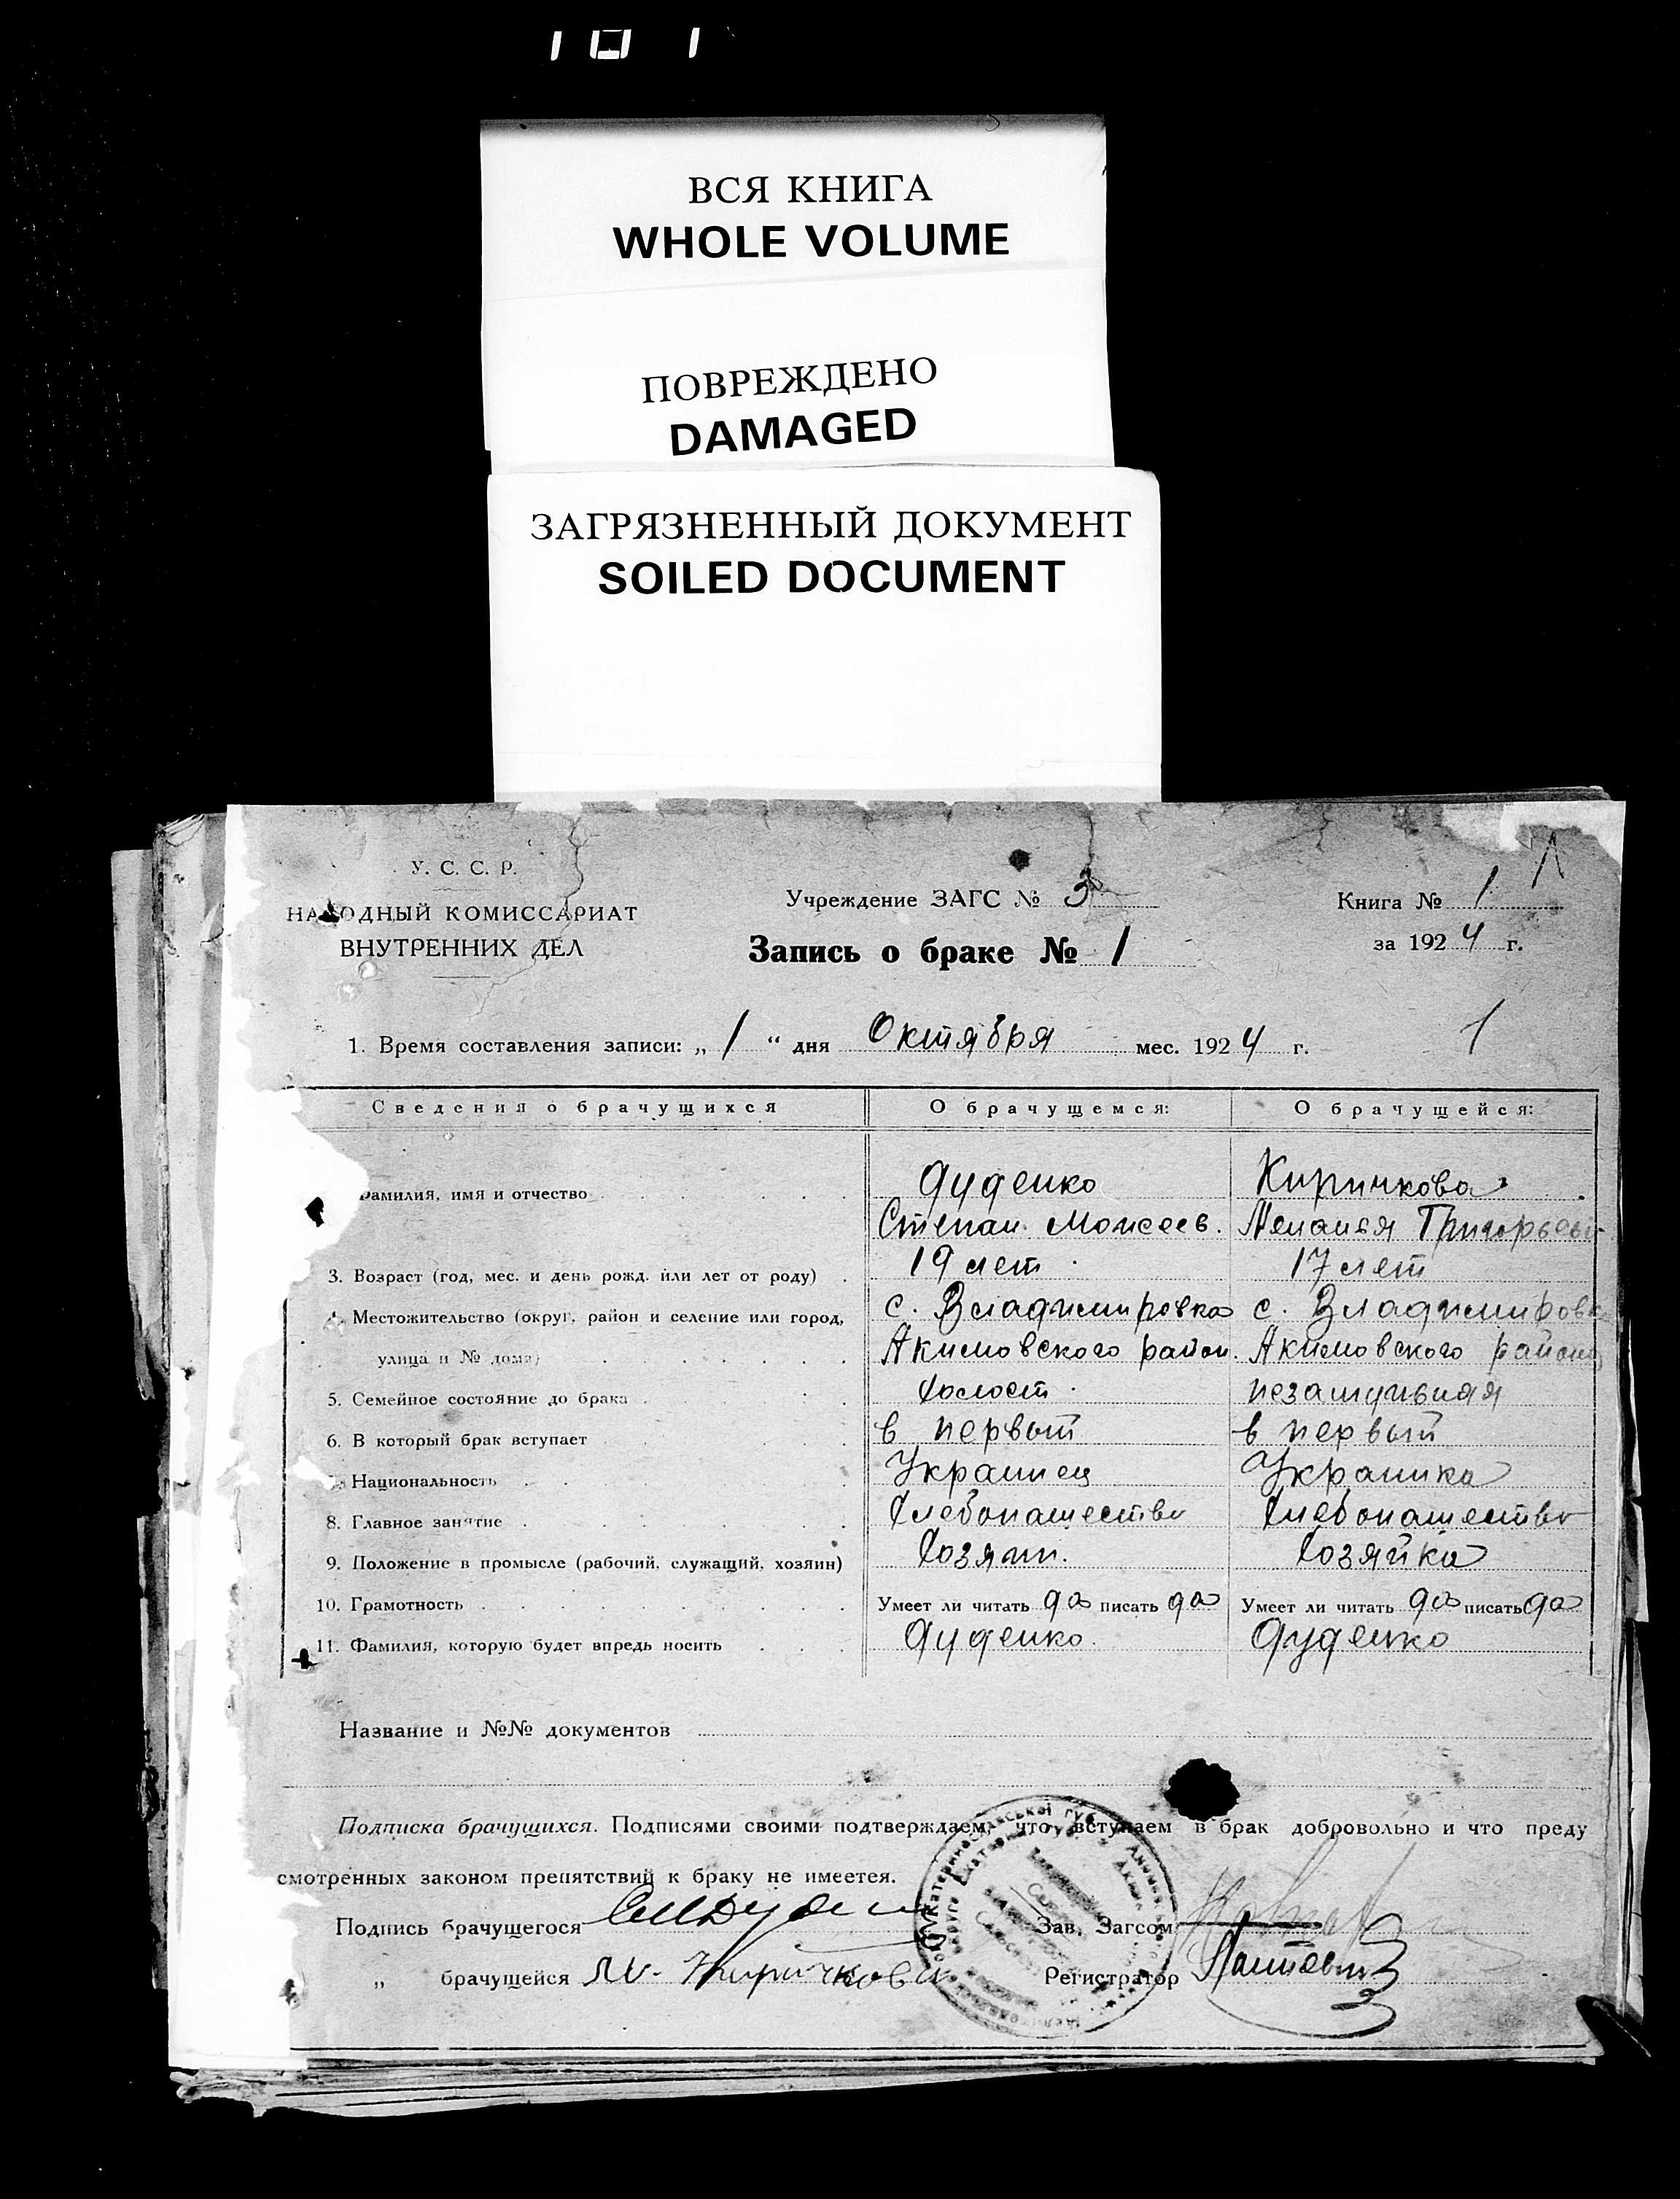 ВСЯ КНИГА
WHOLE VOLUME
ПОВРЕЖДЕНО
DAMAGED
ЗАГРЯЗНЕННЫЙ ДОКУМЕНТ
SOILED DOCUMENT
У. С. С. Р.
НАРОДНЫЙ КОМИССАРИАТ
ВНУТРЕННИХ ДЕЛ
Учреждение ЗАГС № 3
Запись о браке № 1
Книга № 1
за 1924 г.
1. Время составления записи: „ 1 “ дня Октября мес. 1924 г.
1
Сведения о брачущихся О брачущемся: О брачущейся:
Фамилия, имя и отчество Дуденко Киричкова
Степан Моисеев. Меланья Григорьев
3. Возраст (год, мес. и день рожд. или лет от роду) 19 лет 17 лет
4. Местожительство (округ, район и селение или город, с. Владимировка с. Владимировка
улица и № дома) Акимовского район. Акимовского района
5. Семейное состояние до брака холост. незамужняя
6. В который брак вступает в первый в первый
7. Национальность Украинец Украинка
8. Главное занятие хлебопашество хлебопашество
9. Положение в промысле (рабочий, служащий, хозяин) хозяин. хозяйка
10. Грамотность Умеет ли читать да писать да Умеет ли читать да писать да
11. Фамилия, которую будет впредь носить Дуденко. Дуденко
Название и №№ документов
Подписка брачущихся. Подписями своими подтверждаем, что вступаем в брак добровольно и что преду
смотренных законом препятствий к браку не имеется.
Подпись брачущегося Зав. Загсом
„ брачущейся М. Киричкова Регистратор